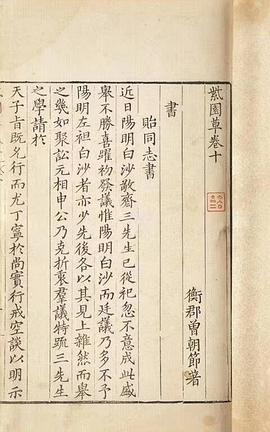 紫園草卷十
衡郡曾朝節著
書
貽同志書
近日陽明白沙敬齋三先生已從祀忽不意成此盛
舉不勝喜躍初發議惟陽明白沙而廷議乃多不予
陽明左袒白沙者亦少先後各以其見上雜然而舉
之幾如聚訟元相申公乃克折衷羣議特疏三先生
之學請於
天子旨既允行而尤丁寧於尚實行戒空談以明示